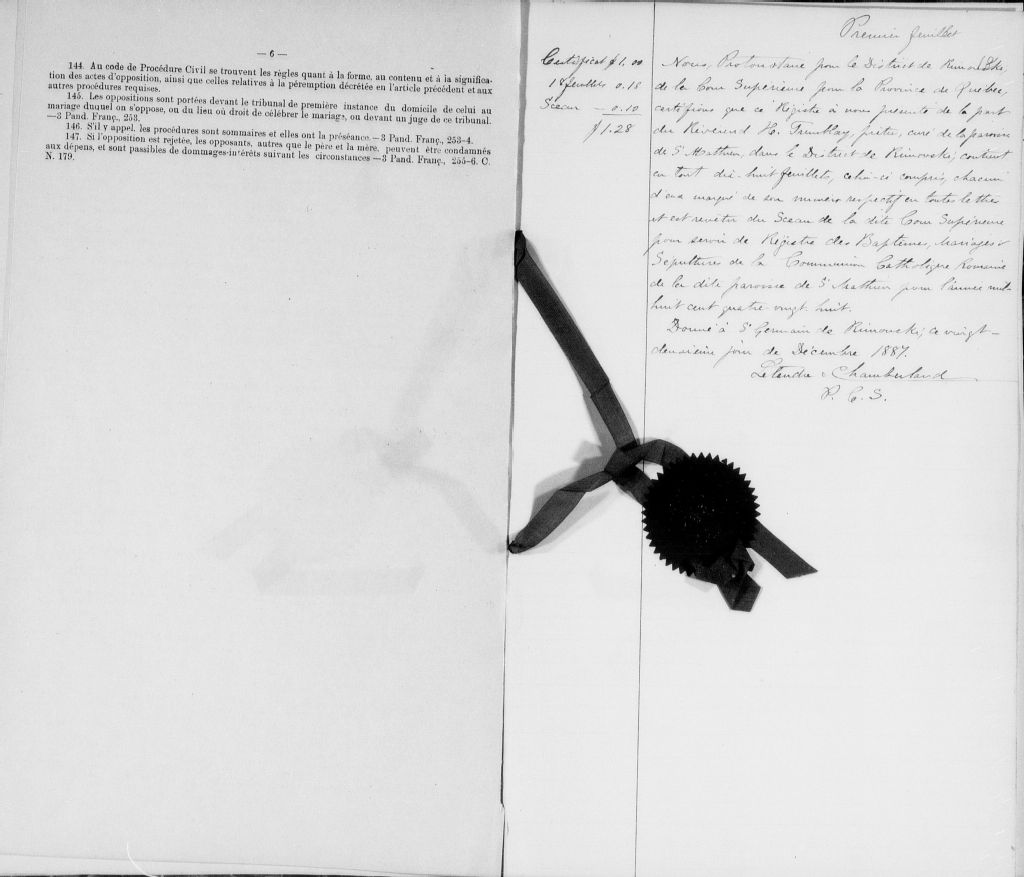 — 6 —
144. Au code de Procédure Civil se trouvent les règles quant à la forme, au contenu et à la significa-
tion des actes d'opposition, ainsi que celles relatives à la péremption décrétée en l'article précédent et aux
autres procédures requises.
145. Les oppositions sont portées devant le tribunal de première instance du domicile de celui au
mariage duquel on s'oppose, ou du lieu où droit de célébrer le mariage, ou devant un juge de ce tribunal.
—3 Pand. Franç., 253.
146. S'il y appel, les procédures sont sommaires et elles ont la préséance.—3 Pand. Franç., 253-4.
147. Si l'opposition est rejetée, les opposants, autres que le père et la mère, peuvent être condamnés
aux dépens, et sont passibles de dommages-intérêts suivant les circonstances—3 Pand. Franç., 255-6. C.
N. 179.
Certificat $1.00
18 feuillets 0.18
Sceau — 0.10
$1.28
Premier feuillet
Nous, Protonotaire pour le District de Rimouski,
de la Cour Supérieure pour la Province de Québec,
certifions que ce Régistre à nous présenté de la part
du Révérend H. Tremblay, prêtre, curé de la paroisse
de St Mathieu, dans le District de Rimouski, contient
en tout dix-huit feuillets, celui-ci compris, chacun
d'eux marqué de son numéro respectif en toutes lettres
et est revêtu du Sceau de la dite Cour Supérieure
pour servir de Régistre des Baptêmes, Mariages &
Sépultures de la Communion Catholique Romaine
de la dite paroisse de St Mathieu pour l'année mil-
huit cent quatre-vingt-huit.
Donné à St Germain de Rimouski, ce vingt-
deuxième jour de Décembre 1887.
Letendre & Chamberland
P. C. S.